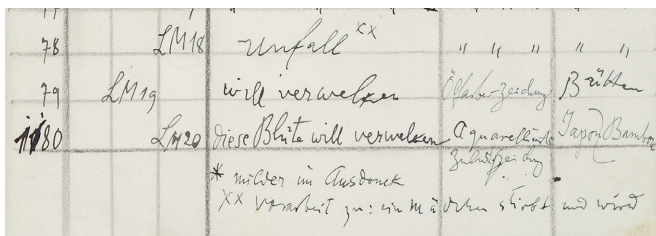 78 LM18 Unfall xx " " " " "
79 LM19 will verwelken Ölfarbe-Zeichng Bütten
1180 LM20 diese Blüte will verwelken Aquarellierte Japon Bambou
* milder im Ausdruck
xx Vorarbeit zu: ein Mädchen stirbt und wird